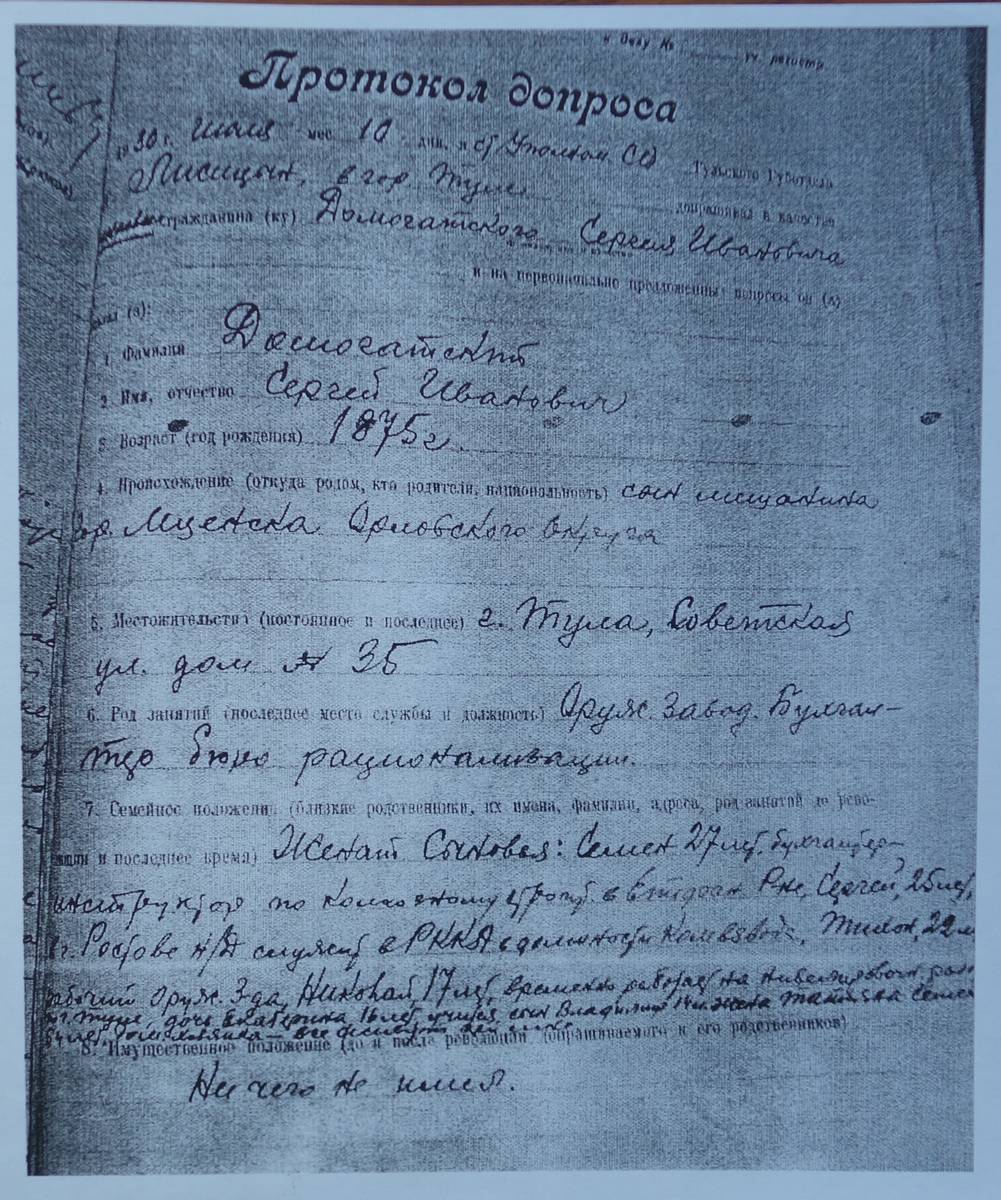 к Делу № уч. регистр.
Протокол допроса
1930 г. Июля мес. 10 дня, я ст Уполном СО Тульского Губотдела
Лисицын, в гор. Туле допрашивал в качестве
гражданина (ку) Домогатского Сергея Ивановича
и на первоначально предложенные вопросы он (а)
зал (а):
1. Фамилия Домогатский
2. Имя, отчество Сергей Иванович
3. Возраст (год рождения) 1875 г.
4. Происхождение (откуда родом, кто родители, национальность) сын мещанина
гор. Мценска Орловского округа
5. Местожительство (постоянное и последнее) г. Тула, Советская
ул. дом № 35
6. Род занятий (последнее место службы и должность) Оруж. Завод. Бухгал-
тер бюро рационализации.
7. Семейное положение (близкие родственники, их имена, фамилии, адреса, род занятий до рево-
люции и последнее время) Женат Сыновья: Семен 27 лет, бухгалтер-
инструктор по колхозному строит. в р-не, Сергей, 25 лет,
в г. Ростове н/Д служит в РККА в должности Комвзвода, Тихон, 22 л
рабочий Оруж. З-да, Николай, 17 лет, временно работает на
в г. Туле, дочь Екатерина 16 лет, учится, сын Владимир жена Татьяна Семен
54 лет, домохозяйка — все
8. Имущественное положение (до и после революции допрашиваемого и его родственников)
Ни чего не имел.